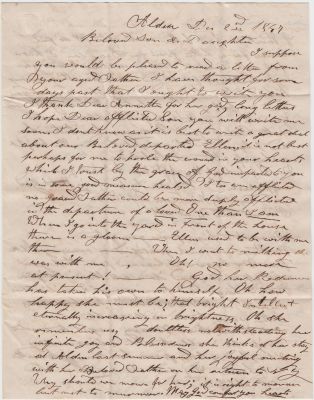 Alden Dec 2nd 1847
Beloved Son & Daughter
I suppose
you would be pleased to read a letter from
your aged Father I have thought for some
days past that I ought to write you
I thank Dear for her good long letter
I hope Dear afflicted Son you will write me
soon. I dont know as it is best to write a great deal
about our Beloved departed Ellen it is not best
perhaps for me to probe the wound in your hearts
which I trust by the grace of God imparted to you
is in some good measure healed I too am afflicted
no Father could be more deeply afflicted
in the departure of a loved One than I am
When I go into the yard in front of the house
there is a gloom Ellen used to be with me
there When I went to milking
was with me Oh! no more
at present! God her Redeemer
has taken his own to himself Oh how
happy she must be, that bright Intellect
eternally increasing in brightness. Oh she
doubtless notwithstanding her
infinite joy and Blessedness she thinks of her stay
at Alden last summer and her joyful meeting
with her Beloved Father on his return to
Why should we mourn for it is right to mourn
but not to murmur May God comfort your hearts